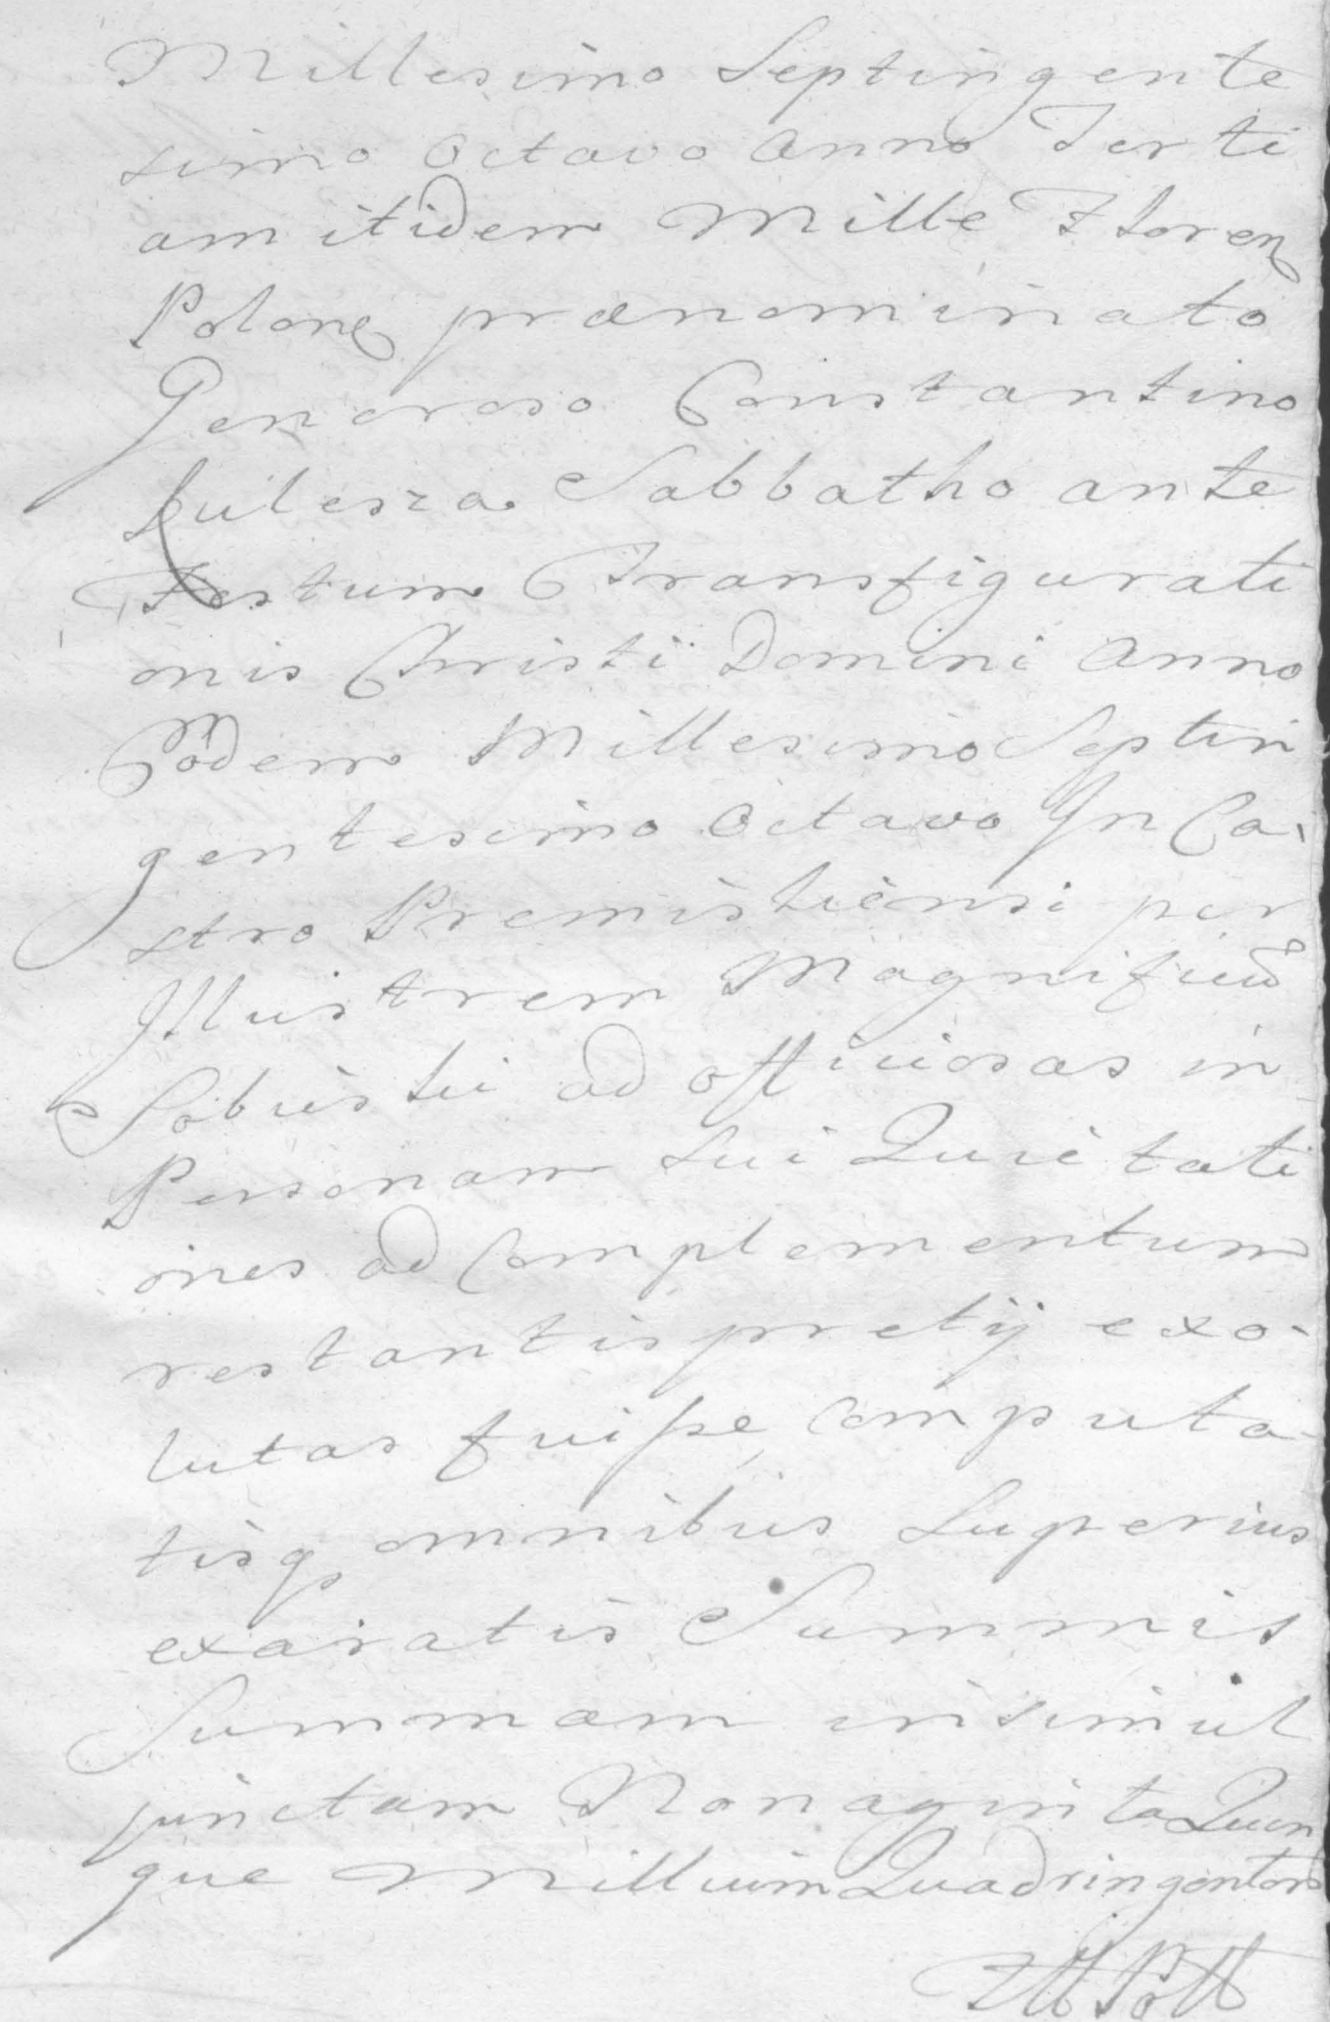 Millesimo Septingente
simo octavo Anno Terti
am itidem Mille Floren
Polon prænominato
Generoso Constantino
Kulesza Sabbatho ante
Festum Transfigurati
onis Christi Domini Anno
Eodem Millesimo Septin
gentesimo octavo In Ca,
stro Premisliensi per
Illustrem Magnificu
Sobieski ad officiosas in
Personam sui Quietati
ones ad Complementum
restantis pretij exo-
lutas fuisse, computa-
tisq omnibus superius
exaratis Summis
Summam insimul
junctam Nonaginta Quin
que Millium Quadringentor